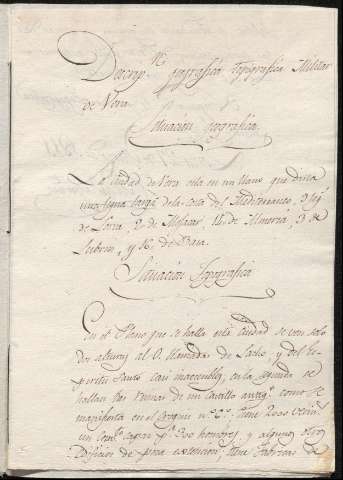 Descrip.n geografica Topografica Militar
de Vera
Situacion geografica.
La ciudad de Vera esta en un llano que dista
una legua larga de la costa del Mediterraneo, 9 leg.s
de Lorca, 2 de Mojacar, 14 de Almeria, 3 de
Lubrin, y 16 de Baza.
Situacion Topografica
En el Plano que se halla esta Ciudad se ven solo
dos alturas al O. llamadas de Tacho, y del Es-
piritu Santo casi inaccesibles; en la segunda se
hallan las ruinas de un castillo antig.o como se
manifiesta en el croquis n.o 2.o tiene 2000 vecin.s
un conb.to capaz p.a 200 hombres, y algunos otros
edificios de poca extencion, tiene Fabricas de